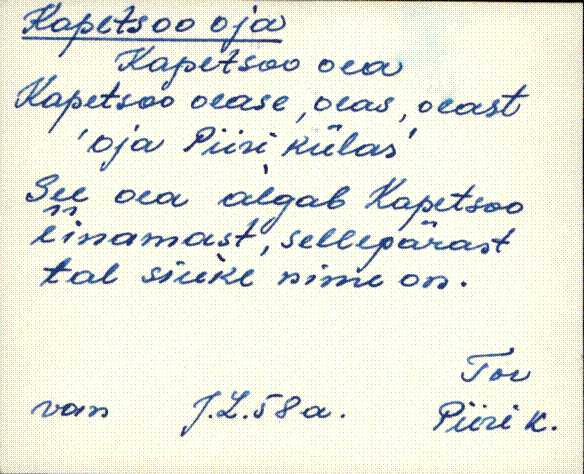 Kapetsoo oja
Kapetsoo oea
Kapetsoo oease, oeas, oeast
'oja Piiri külas'
See oea algab Kapetsoo
einamast, sellepärast
tal siuke nime on.
Tor
van J.L. 58 a. Piiri k.